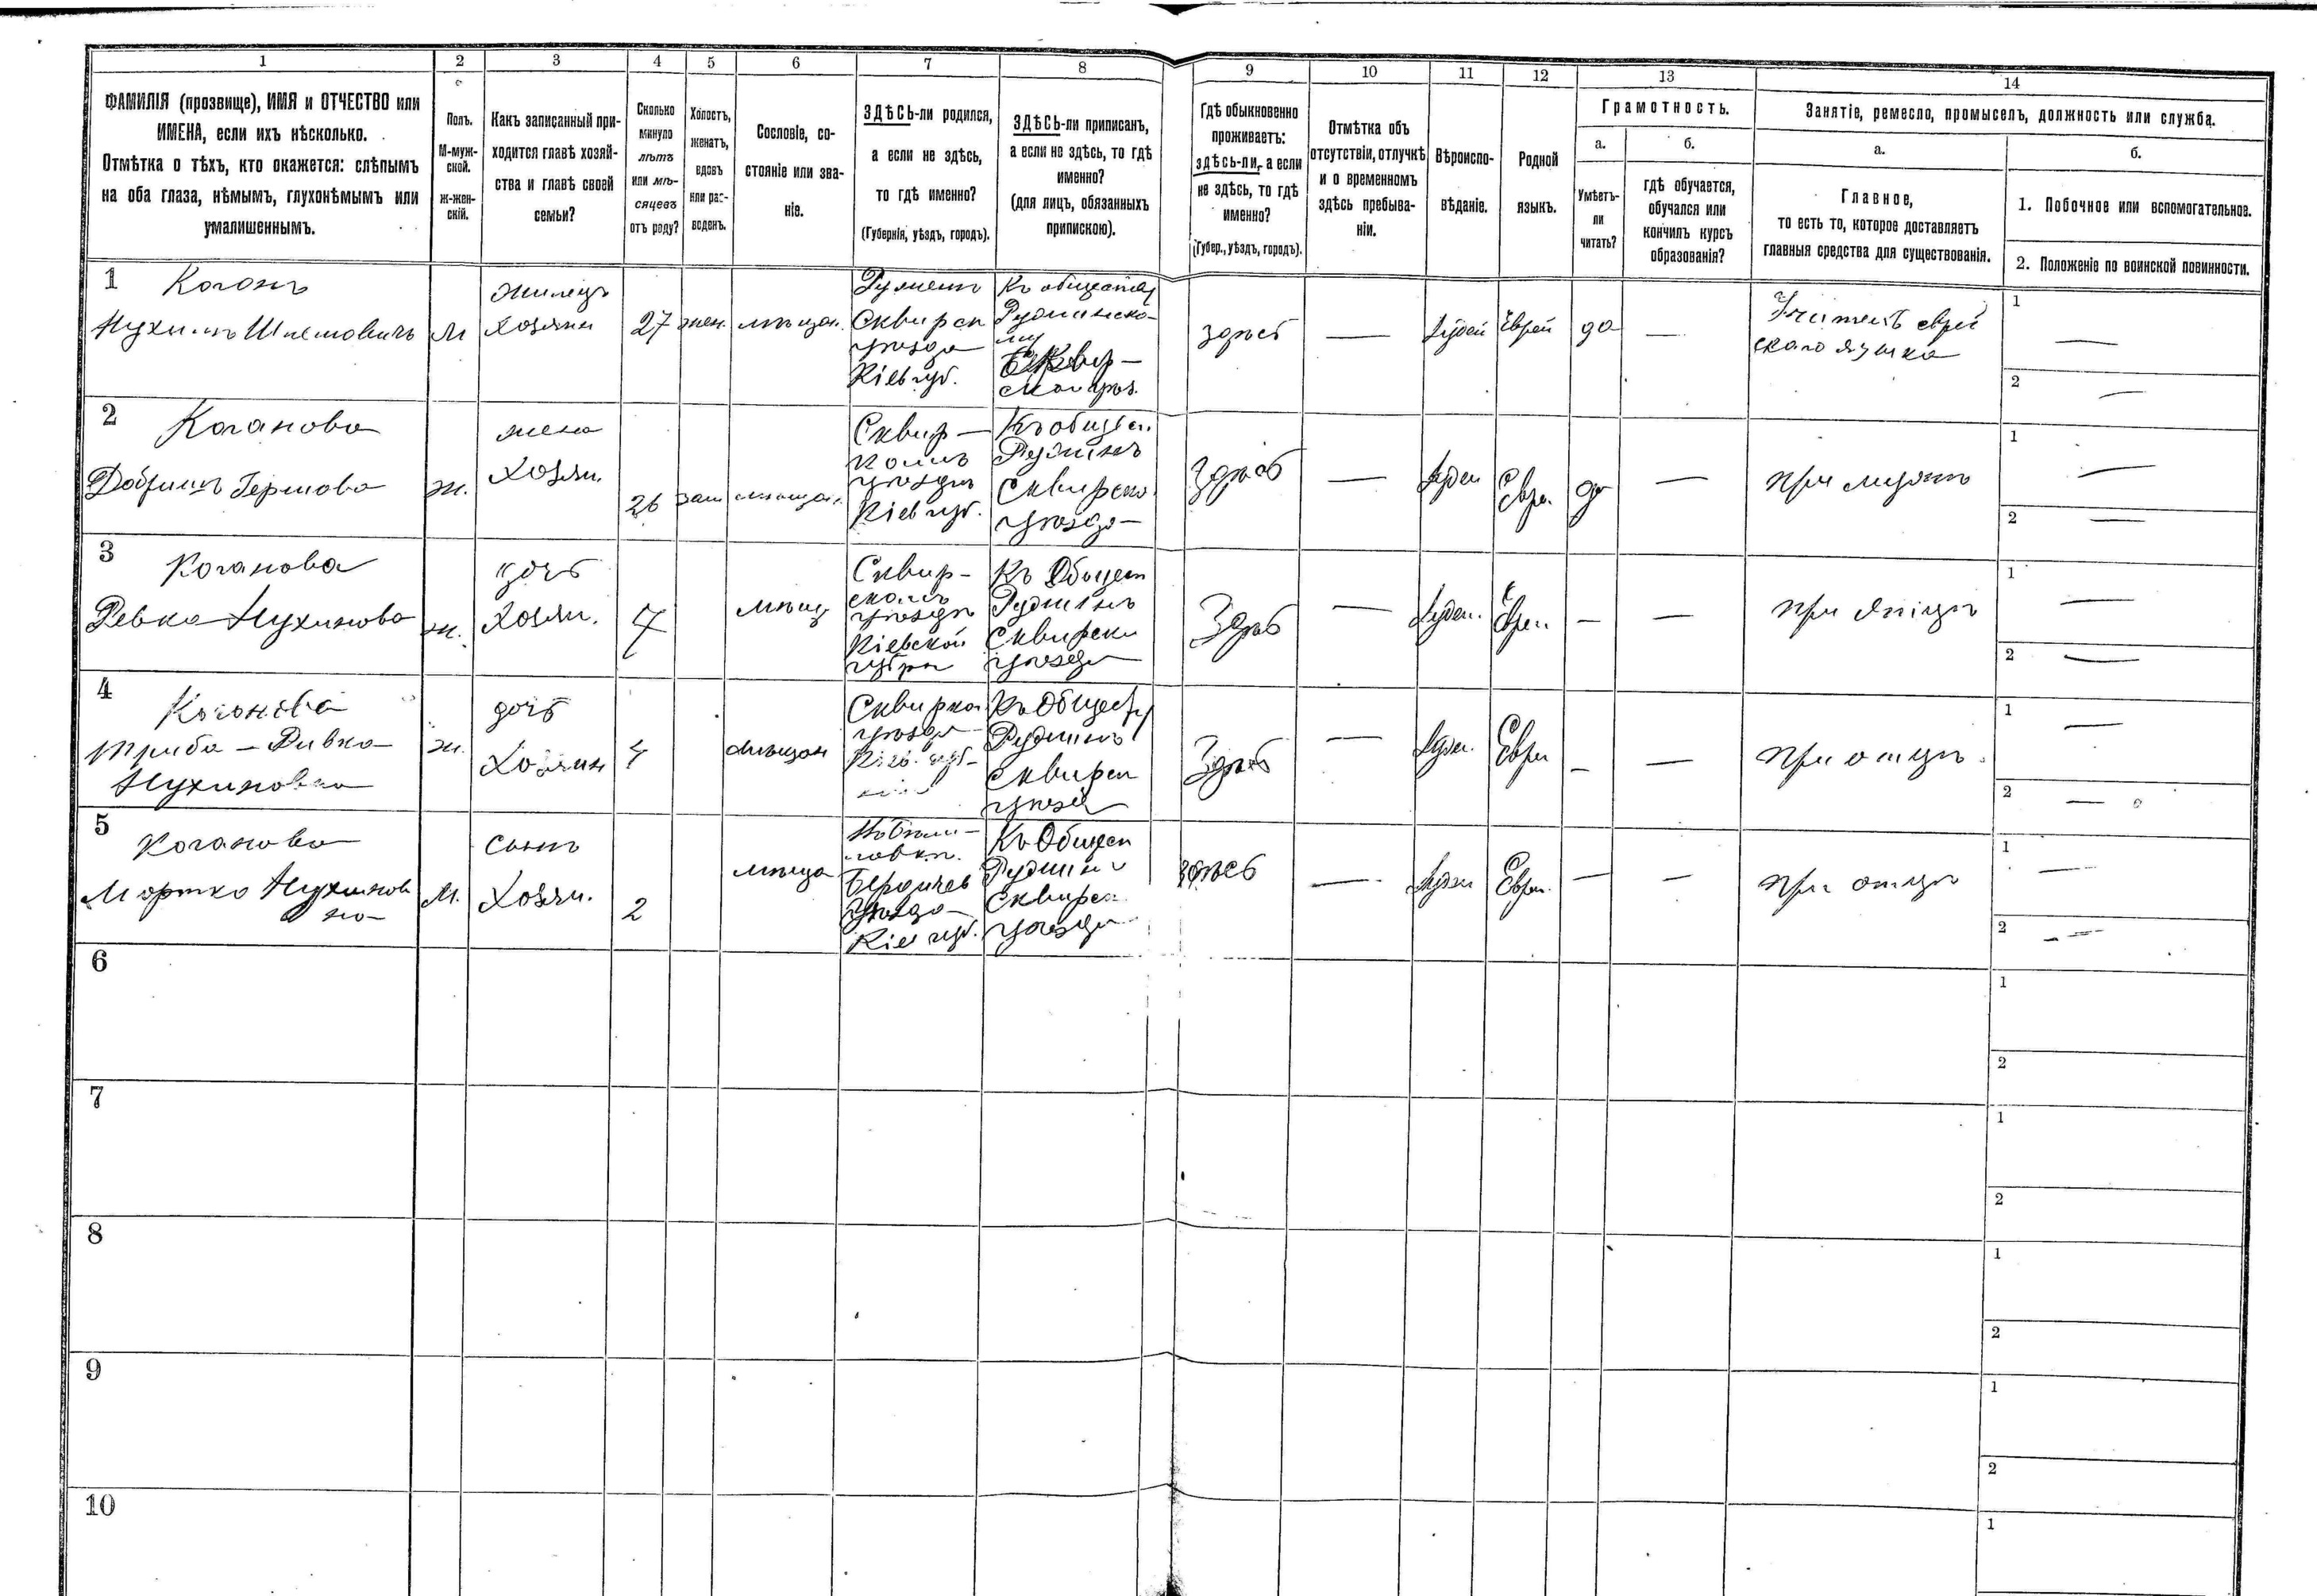 1 2 3 4 5 6 7 8 9 10 11 12 13 14
ФАМИЛІЯ (прозвище), ИМЯ и ОТЧЕСТВО или
ИМЕНА, если ихъ нѣсколько.
Отмѣтка о тѣхъ, кто окажется: слѣпымъ
на оба глаза, нѣмымъ, глухонѣмымъ или
умалишеннымъ.
Полъ.
М-муж-
ской.
ж-жен-
скій.
Какъ записанный при-
ходится главѣ хозяй-
ства и главѣ своей
семьи?
Сколько
минуло
лѣтъ
или мѣ-
сяцевъ
отъ роду?
Холостъ,
женатъ,
вдовъ
или раз-
веденъ.
Сословіе, со-
стояніе или зва-
ніе.
ЗДѢСЬ-ли родился,
а если не здѣсь,
то гдѣ именно?
(Губернія, уѣздъ, городъ).
ЗДѢСЬ-ли приписанъ,
а если не здѣсь, то гдѣ
именно?
(для лицъ, обязанныхъ
припискою).
Гдѣ обыкновенно
проживаетъ:
здѣсь-ли, а если
не здѣсь, то гдѣ
именно?
(Губер., уѣздъ, городъ).
Отмѣтка объ
отсутствіи, отлучкѣ
и о временномъ
здѣсь пребыва-
ніи.
Вѣроиспо-
вѣданіе.
Родной
языкъ.
Грамотность.
а.
Умѣетъ-
ли
читать?
б.
гдѣ обучается,
обучался или
кончилъ курсъ
образованія?
Занятіе, ремесло, промыселъ, должность или служба.
а.
Главное,
то есть то, которое доставляетъ
главныя средства для существованія.
б.
1. Побочное или вспомогательное.
2. Положеніе по воинской повинности.
1
Коганъ
Нухимъ Шлемовичъ
М
жилецъ
хозяин
27
жен.
мѣщан.
Сквирск
уѣзда
Кіев губ.
Къ обществу
здѣсь
—
Іудей
Еврей
да
—
Учитель еврей
скаго языка
1 —
2 —
2
Коганова
Гершова
ж.
жена
Хозяи.
26
зам
мѣщан.
Сквир-
комъ
уѣздѣ
Кіев губ.
Къ общест.
Сквирско
уѣзда
Здѣсь
—
Іудей
Евре.
да
—
при мужѣ
1 —
2 —
3
Коганова
Ревка Нухимова
ж.
дочь
Хозяи.
7
мѣщ
Сквир-
скомъ
уѣздѣ
Кіевской
губерн
Къ Общест
Сквирски
уѣзда
Здѣсь
—
Іудеи.
Евреи.
—
—
при отцѣ
1 —
2 —
4
Коганова
Ривка
Нухимовна
ж.
дочь
Хозяин
4
мѣщан
уѣзда
Къ Обществу
Сквирск
уѣзда
Здѣсь
—
Іудеи.
Евреи
—
—
при отцѣ.
1 —
2 —
5
Коганова
Мортко
М.
сынъ
Хозяи.
2
мѣща
Бердичев
уѣзда
Кіев губ.
Къ Общест
Сквирск
уѣзда
здѣсь
—
Іудеи
Евреи.
—
—
при отцѣ
1 —
2 —
6
1
2
7
1
2
8
1
2
9
1
2
10
1